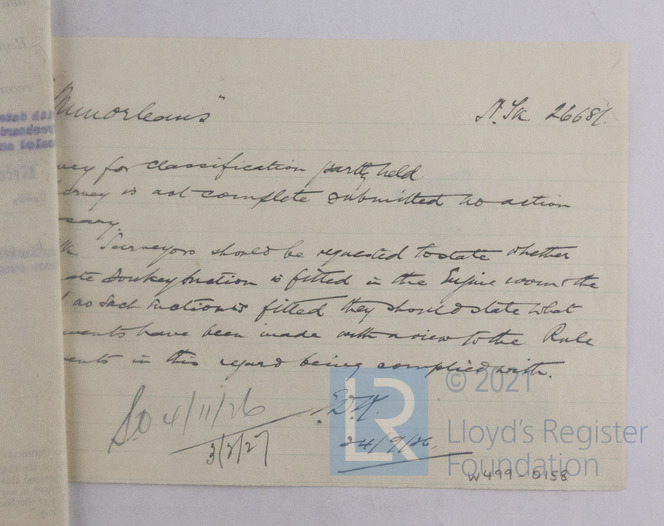 "Minorleans"
N. Yk 26681
vey for classification partly held
urvey is not complete submitted no action
ssary
Surveyors should be requested to state whether
ate Donkey suction is fitted in the Engine room & the
as such suction is fitted they should state what
ments have been made with a view to the Rule
ents in this regard being complied with.
4/11/26
3/2/27
24/9/26.
LR
© 2021
Lloyd's Register
Foundation
W499-0158